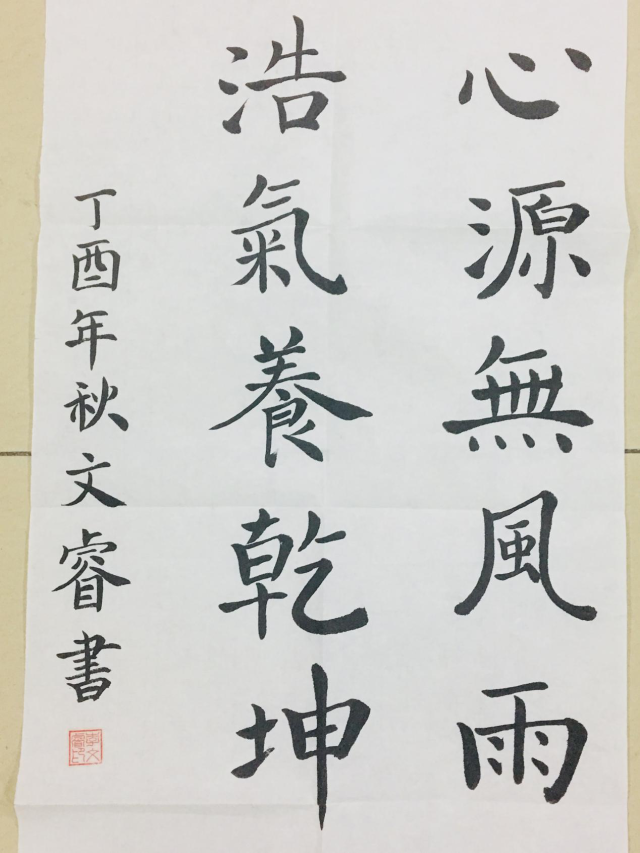 心源無風雨
浩氣養乾坤
丁酉年秋文睿書